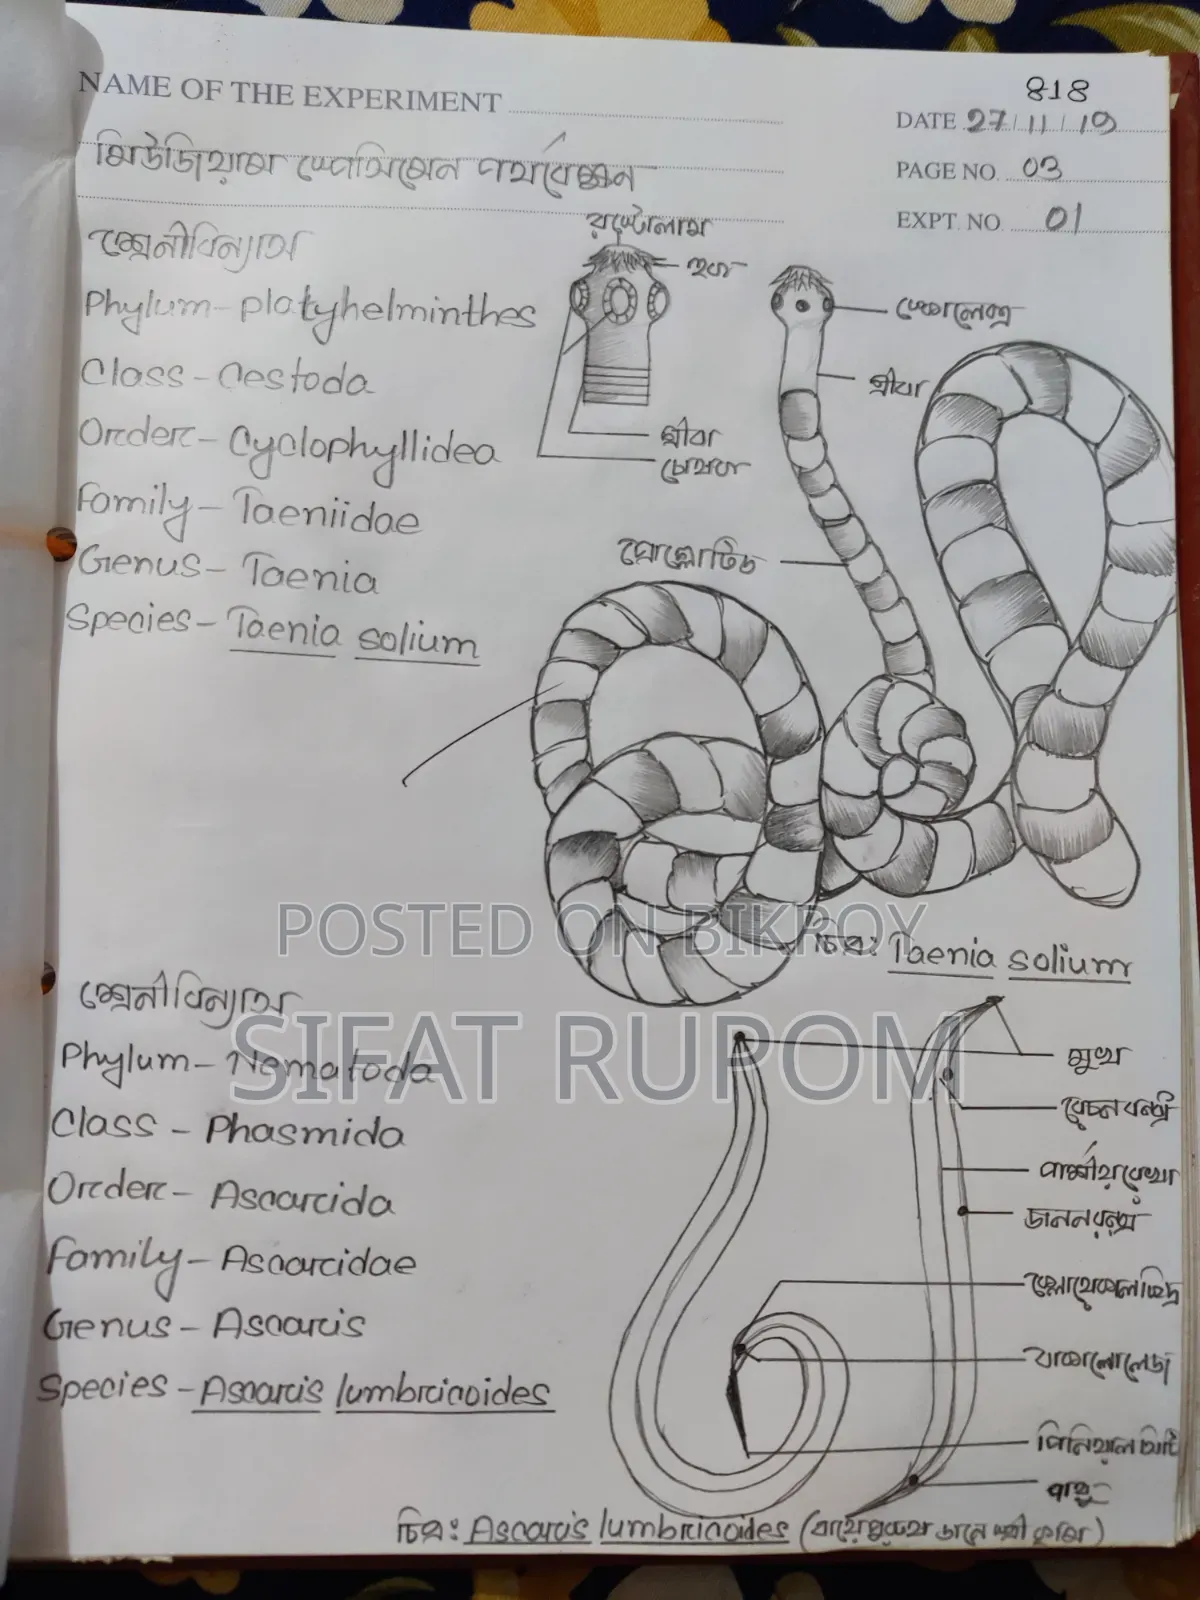 818
NAME OF THE EXPERIMENT
DATE 27/11/19
মিউজিয়াম স্পেসিমেন পর্যবেক্ষন
PAGE NO. 03
EXPT. NO. 01
শ্রেনীবিন্যাস
রস্টেলাম
হুক
Phylum- Platyhelminthes
স্কোলেক্স
Class- Cestoda
গ্রীবা
Order- Cyclophyllidea
গ্রীবা
চোষক
Family- Taeniidae
প্রোগ্লোটিড
Genus- Taenia
Species- Taenia solium
POSTED ON BIKROY
চিত্র: Taenia solium
শ্রেনীবিন্যাস
SIFAT RUPOM
Phylum- Nematoda
মুখ
রেচনরন্ধ্র
Class - Phasmida
পার্শ্বীয়রেখা
Order- Ascarcida
জননরন্ধ্র
Family- Ascarcidae
ক্লোয়েকাল ছিদ্র
Genus- Ascarcis
Species - Ascarcis lumbricoides
পিনিয়াল সিটি
পায়ু
চিত্র: Ascarcis lumbricoides (বায়েপুরুষ ডানে স্ত্রী কৃমি)